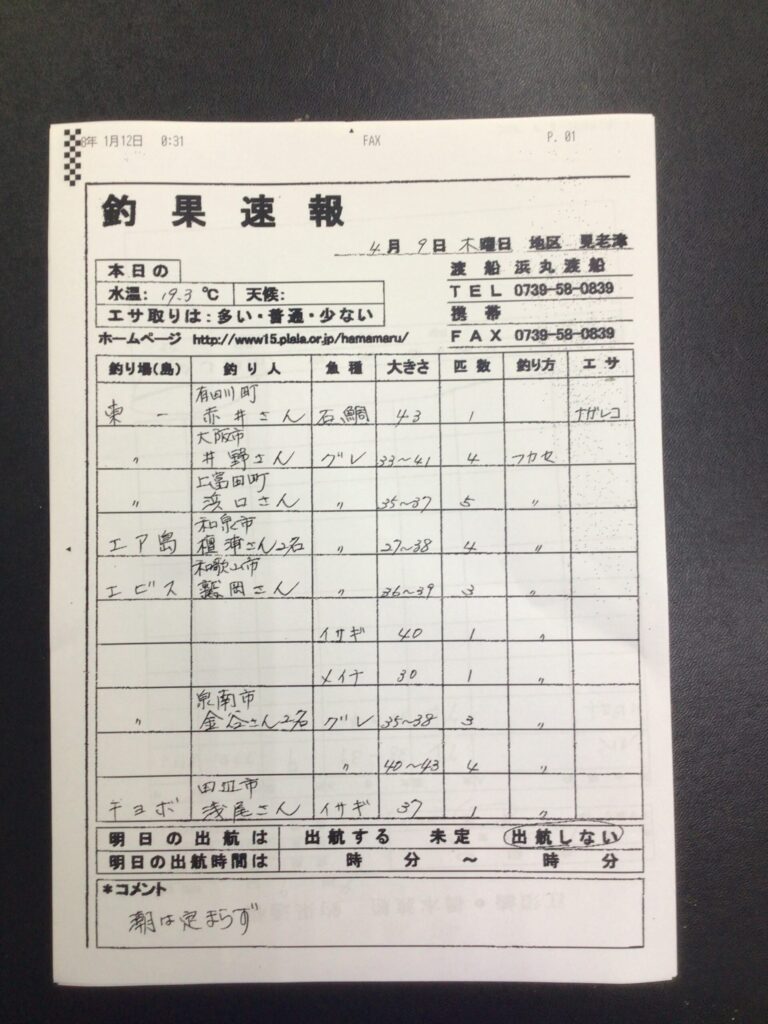 8年 1月12日 0:31 FAX P. 01
釣果速報
4月 9日 木曜日 地区 見老津
本日の
水温: 19.3 ℃ 天候:
エサ取りは:多い・普通・少ない
渡船 浜丸渡船
TEL 0739-58-0839
携帯
FAX 0739-58-0839
ホームページ http://www15.plala.or.jp/hamamaru/
釣り場(島) 釣り人 魚種 大きさ 匹数 釣り方 エサ
有田川町
東一 赤井さん 石鯛 43 1 ナガレコ
大阪市
〃 井野さん グレ 33~41 4 フカセ
上富田町
〃 浜口さん 〃 35~37 5 〃
和泉市
エア島 檀浦さん2名 〃 27~38 4 〃
和歌山市
エビス 鷲岡さん 〃 36~39 3 〃
イサギ 40 1 〃
メイチ 30 1 〃
泉南市
〃 金谷さん2名 グレ 35~38 3 〃
〃 40~43 4 〃
田辺市
チョボ 浅尾さん イサギ 37 1 〃
明日の出航は 出航する 未定 出航しない
明日の出航時間は 時 分 ~ 時 分
*コメント
潮は定まらず